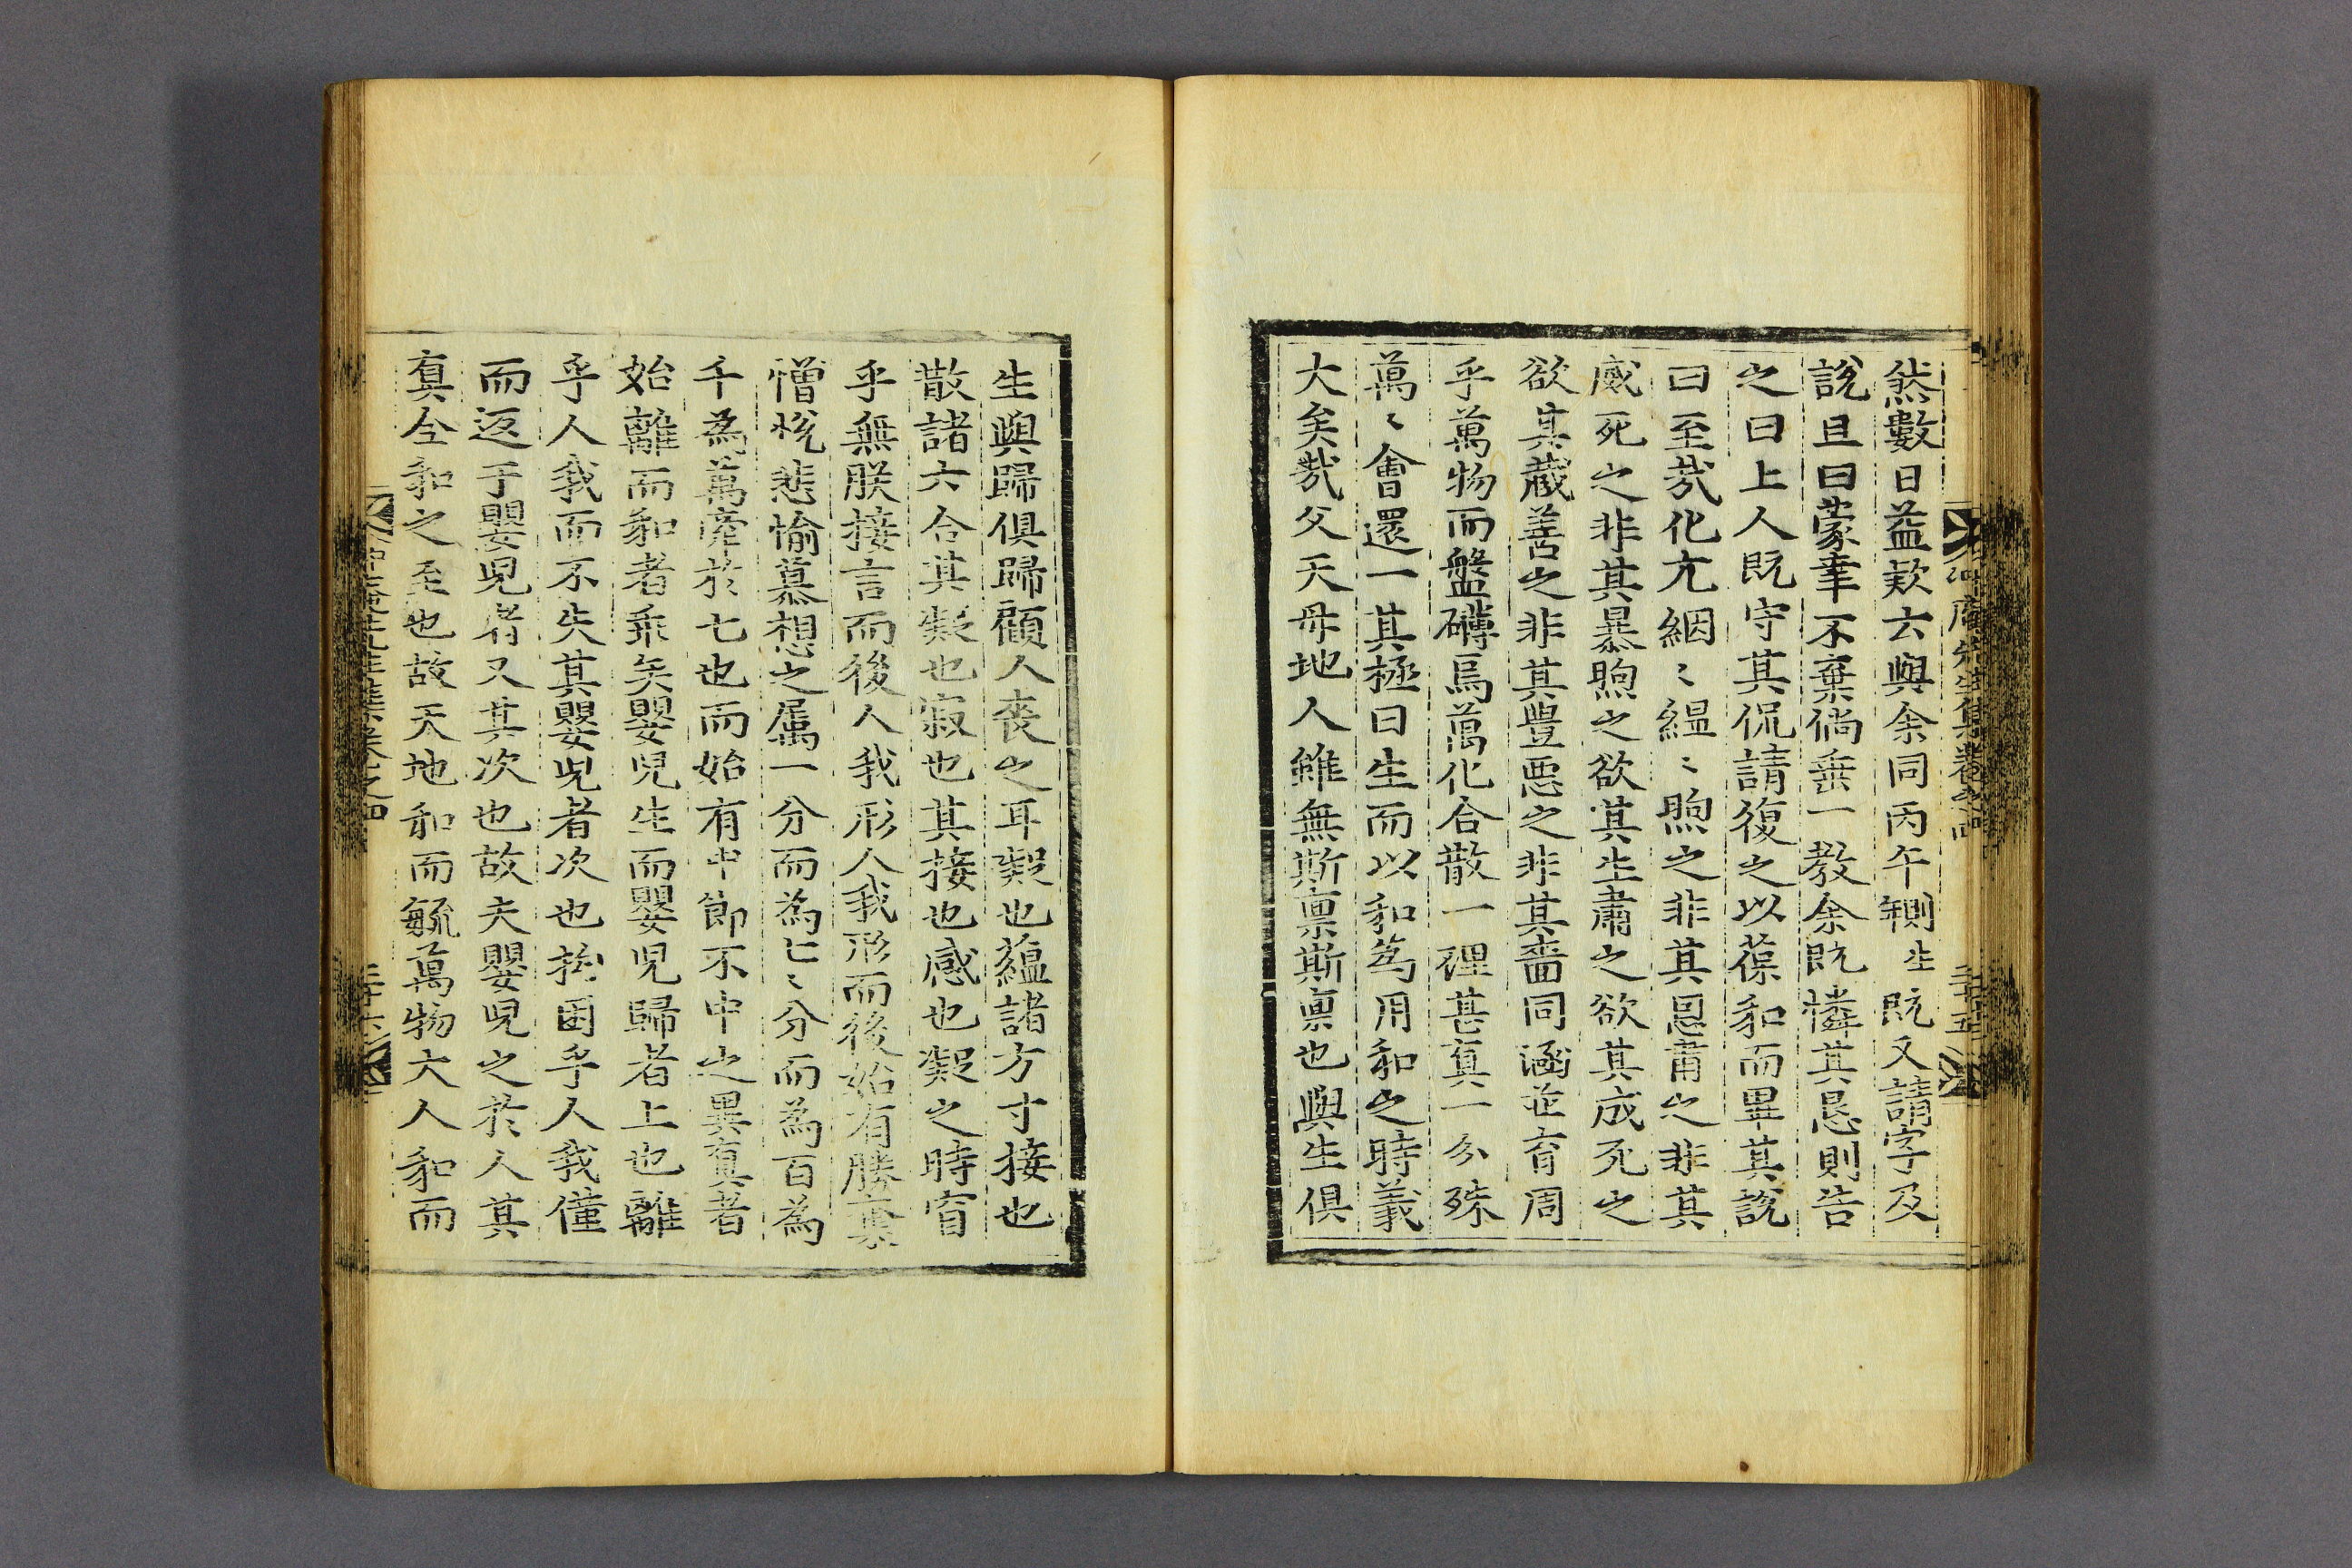 然數日益欵六與余同丙午生既又請字及
說且曰蒙幸不棄倘垂一教余既憐其恳則告
之曰上人既守其侃請復之以葆和而畢其說
曰至㦲化亢絪〻緼〻煦之非其恩肅之非其
威死之非其暴煦之欲其生肅之欲其成死之
欲其蔵善之非其豊惡之非其嗇同涵並育周
乎萬物而盤礴焉萬化合散一理甚真一分殊
萬〻會還一其極曰生而以和為用和之時義
大矣㦲父天母地人雖無斯禀斯禀也與生俱
沖庵先生集卷之四 三十五
生與歸俱歸顧人喪之耳凝也蘊諸方寸接也
散諸六合其凝也寂也其接也感也凝之時窅
乎無朕接言而後人我形人我形而後始有勝
憎恱悲愉慕想之屬一分而為七〻分而為百為
千為萬牽於七也而始有中節不中之異真者
始離而和者乖矣嬰児生而嬰児歸者上也離
乎人我而不失其嬰児者次也拘困乎人我僅
而返于嬰児者又其次也故夫嬰児之於人其
真全和之至也故天地和而毓萬物大人和而
沖庵先生集卷之四 三十六